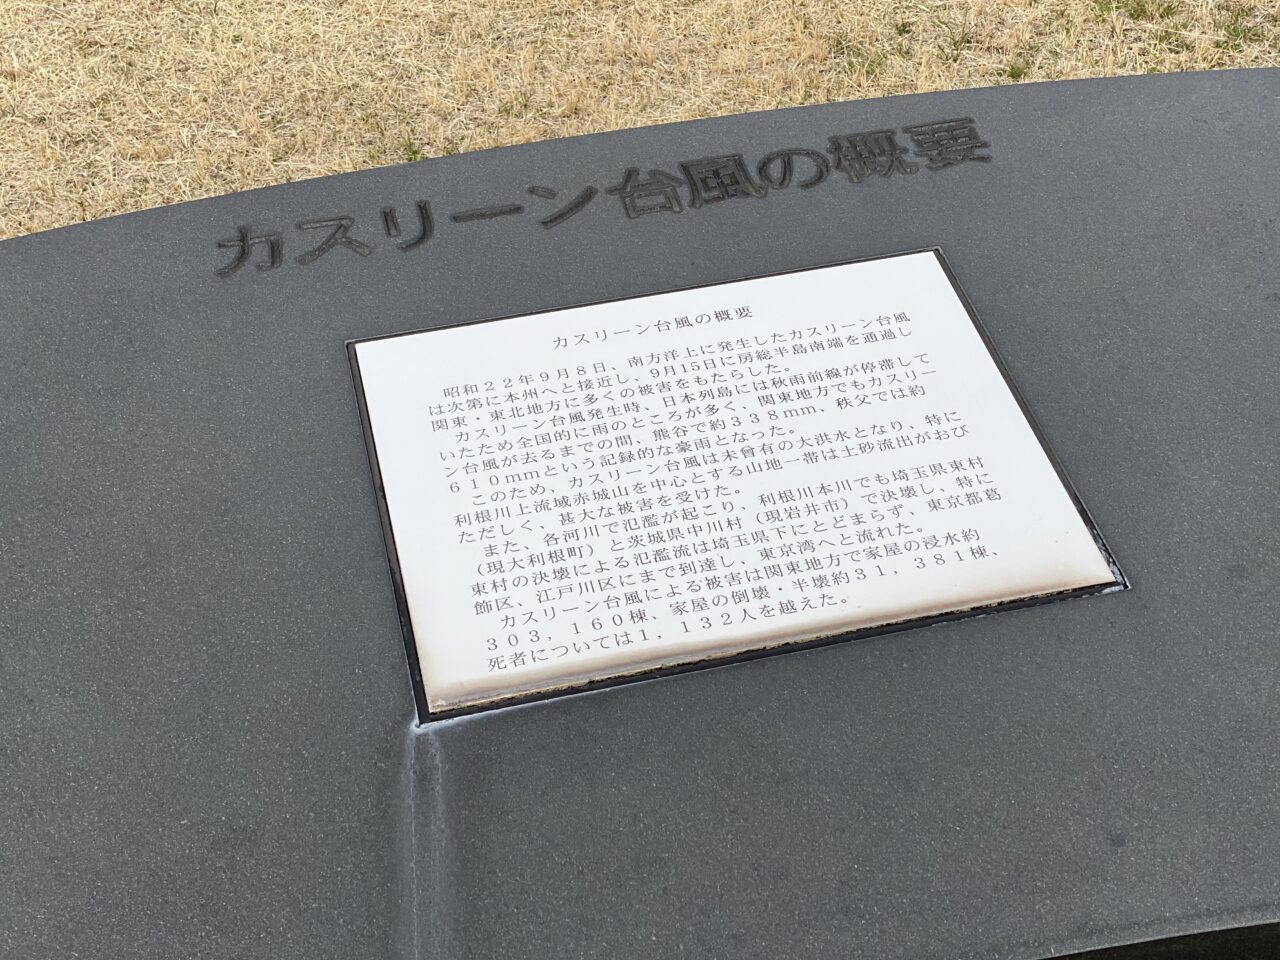 カスリーン台風の概要
カスリーン台風の概要
昭和２２年９月８日、南方洋上に発生したカスリーン台風
は次第に本州へと接近し、９月１５日に房総半島南端を通過し
関東・東北地方に多くの被害をもたらした。
カスリーン台風発生時、日本列島には秋雨前線が停滞して
いたため全国的に雨のところが多く、関東地方でもカスリー
ン台風が去るまでの間、熊谷で約３３８ｍｍ、秩父では約
６１０ｍｍという記録的な豪雨となった。
このため、カスリーン台風は未曾有の大洪水となり、特に
利根川上流域赤城山を中心とする山地一帯は土砂流出がおび
ただしく、甚大な被害を受けた。
また、各河川で氾濫が起こり、利根川本川でも埼玉県東村
（現大利根町）と茨城県中川村（現岩井市）で決壊し、特に
東村の決壊による氾濫流は埼玉県下にとどまらず、東京都葛
飾区、江戸川区にまで到達し、東京湾へと流れた。
カスリーン台風による被害は関東地方で家屋の浸水約
３０３，１６０棟、家屋の倒壊・半壊約３１，３８１棟、
死者については１，１３２人を越えた。